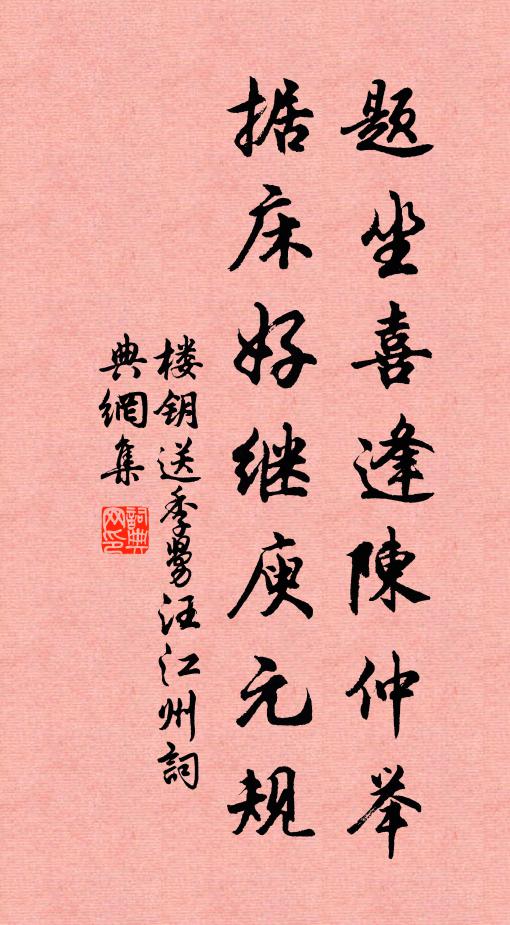 题坐喜逢陳仲举
据床好继庾元规
楼钥送季野汪江州詞
典網集
詞典网印